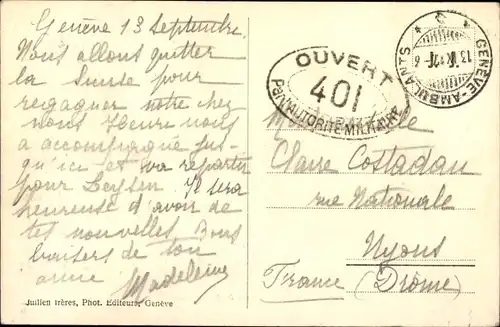 Genève 13 Septembre
Nous allons quitter
la Suisse pour
regagner notre chez
nous Henri nous
a accompagné jus-
qu'ici et va repartir
pour Leysin. Il sera
heureuse d'avoir de
tes nouvelles. Bons
baisers de ton
amie Madeleine
Jullien frères, Phot. Editeurs, Genève
OUVERT
401
PAR L'AUTORITÉ MILITAIRE
GENÈVE-AMBULANTS
13.IX.
Claire Costadau
rue Nationale
Nyons
France (Drôme)